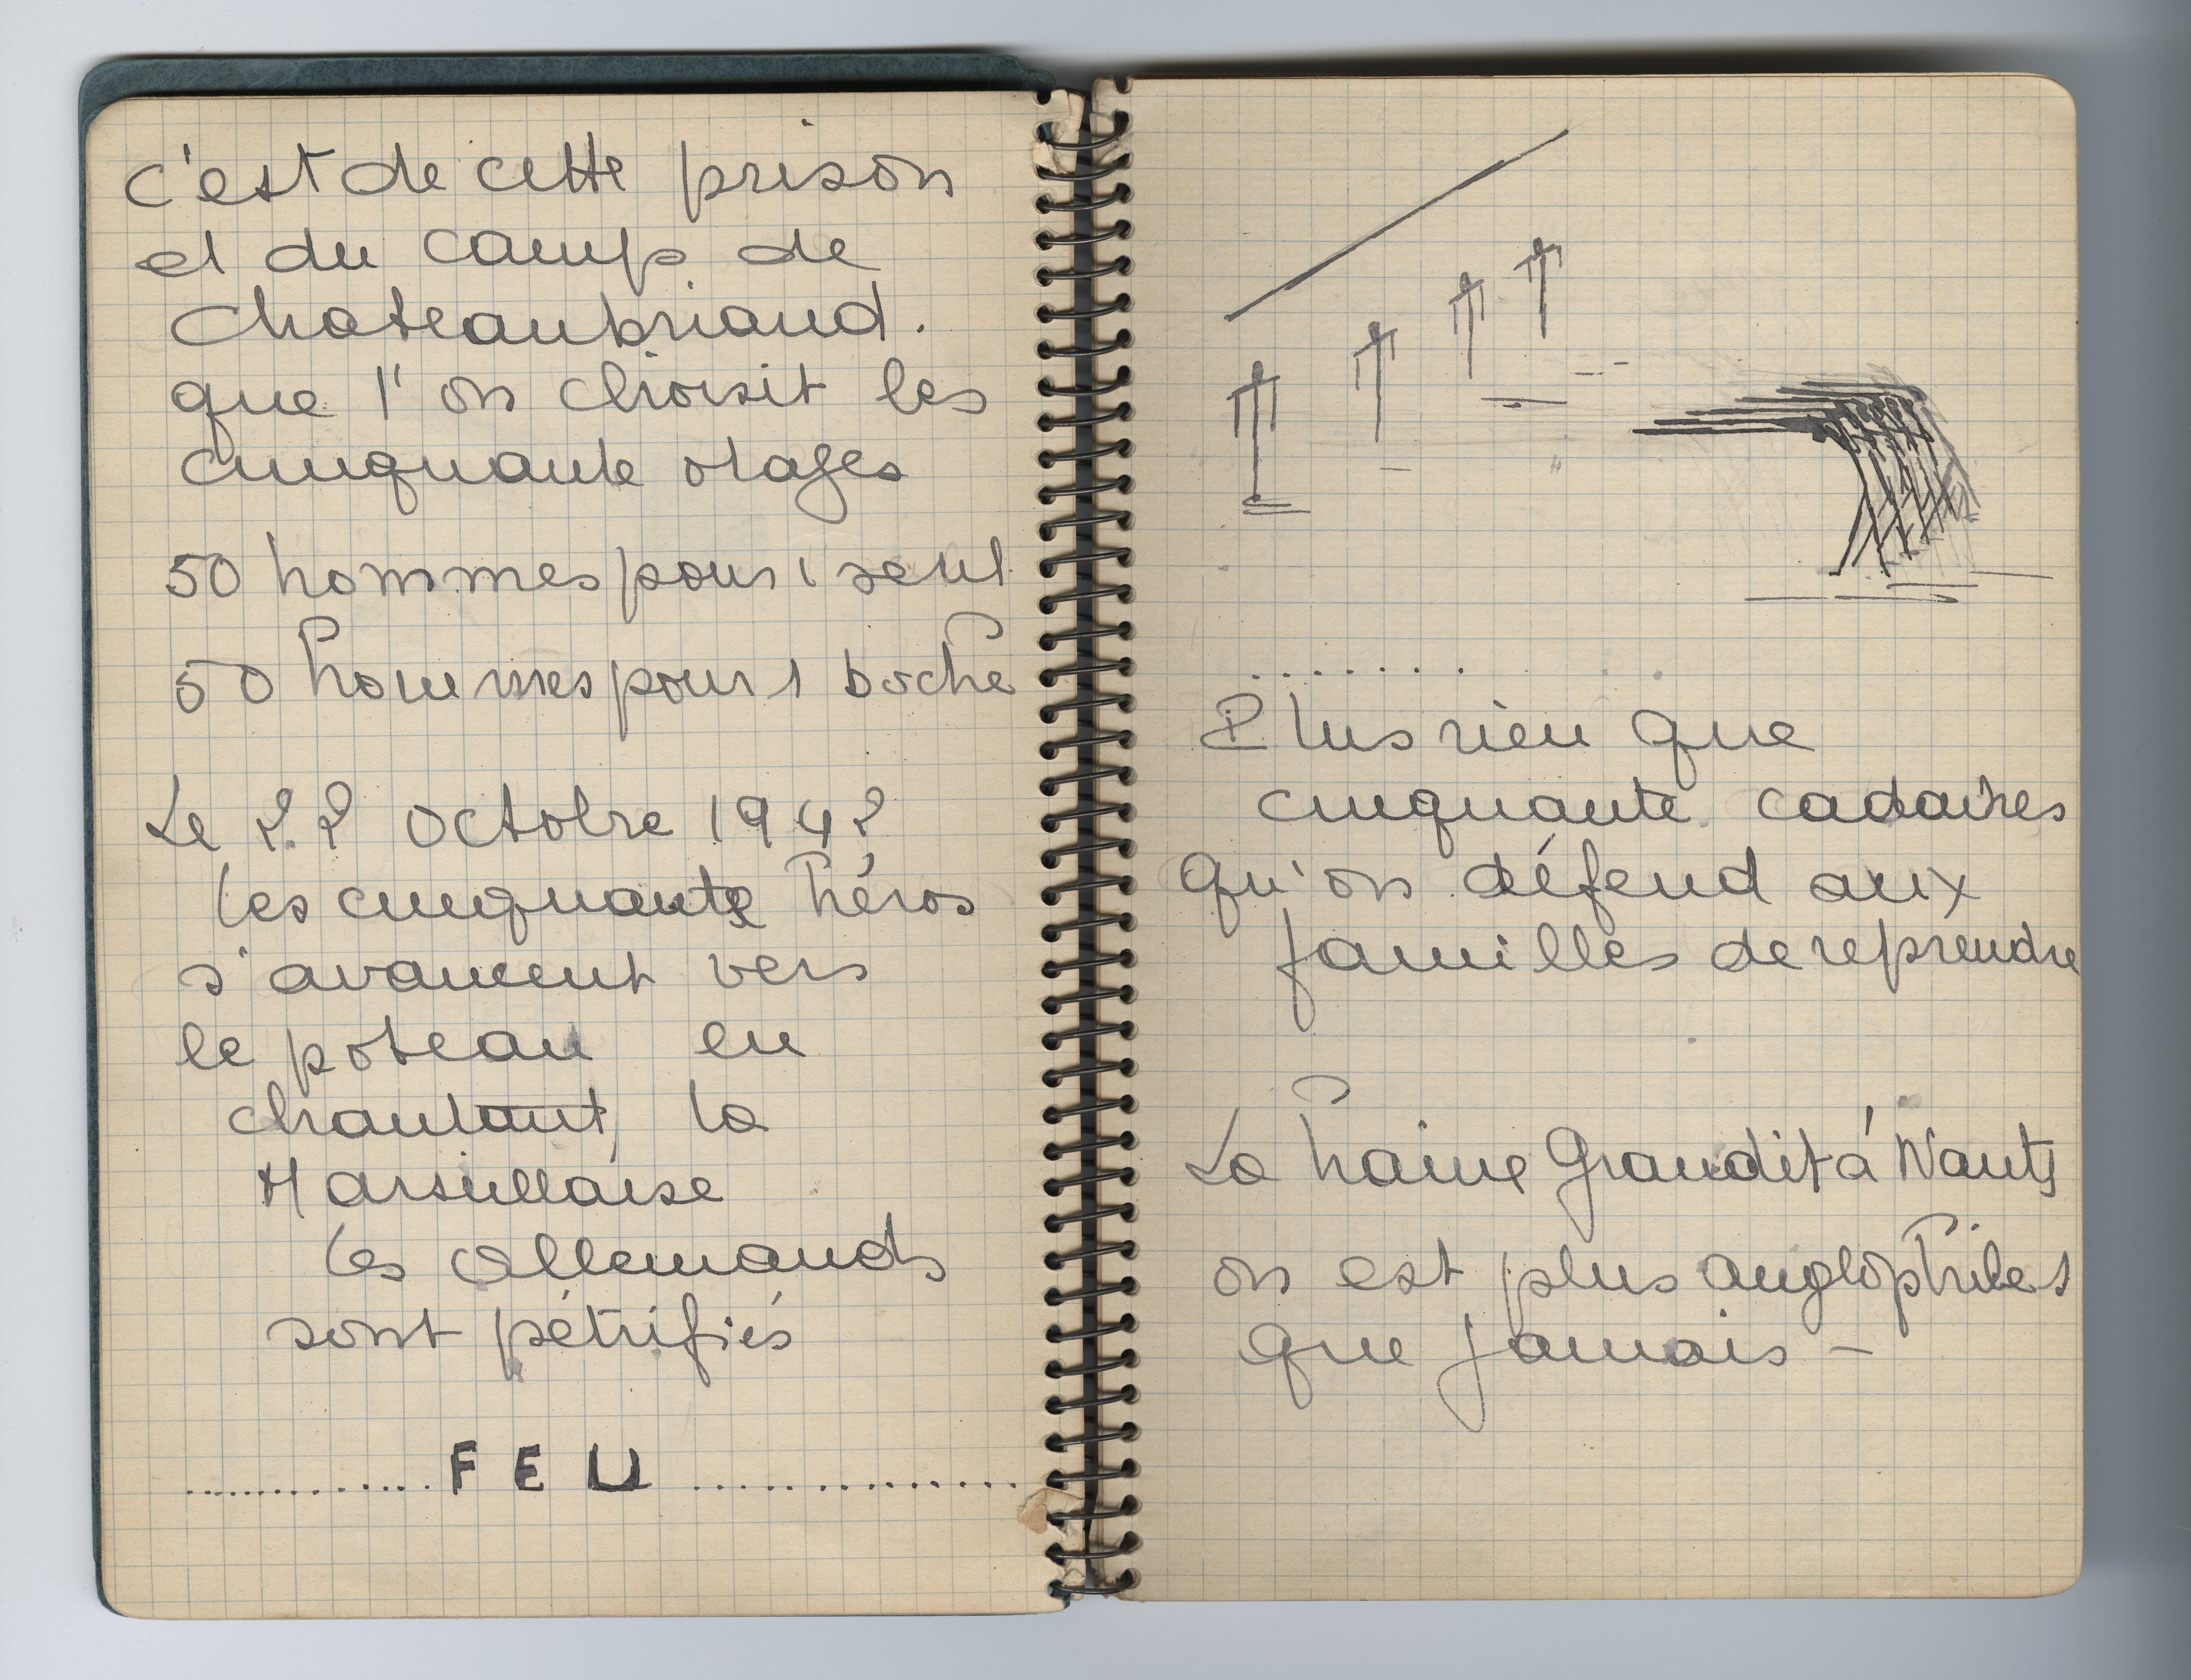 c'est de cette prison
et du camp de
Chateaubriand.
que l'on choisit les
cinquante otages
50 hommes pour 1 seul
50 hommes pour 1 boche
Le 22 octobre 1942
les cinquante héros
s'avancent vers
le poteau en
chantant la
Marseillaise
les Allemands
sont pétrifiés
............. F E U ...............
........
Plus rien que
cinquante cadavres
qu'on défend aux
familles de reprendre
La haine grandit à Nantes
on est plus anglophiles
que jamais -